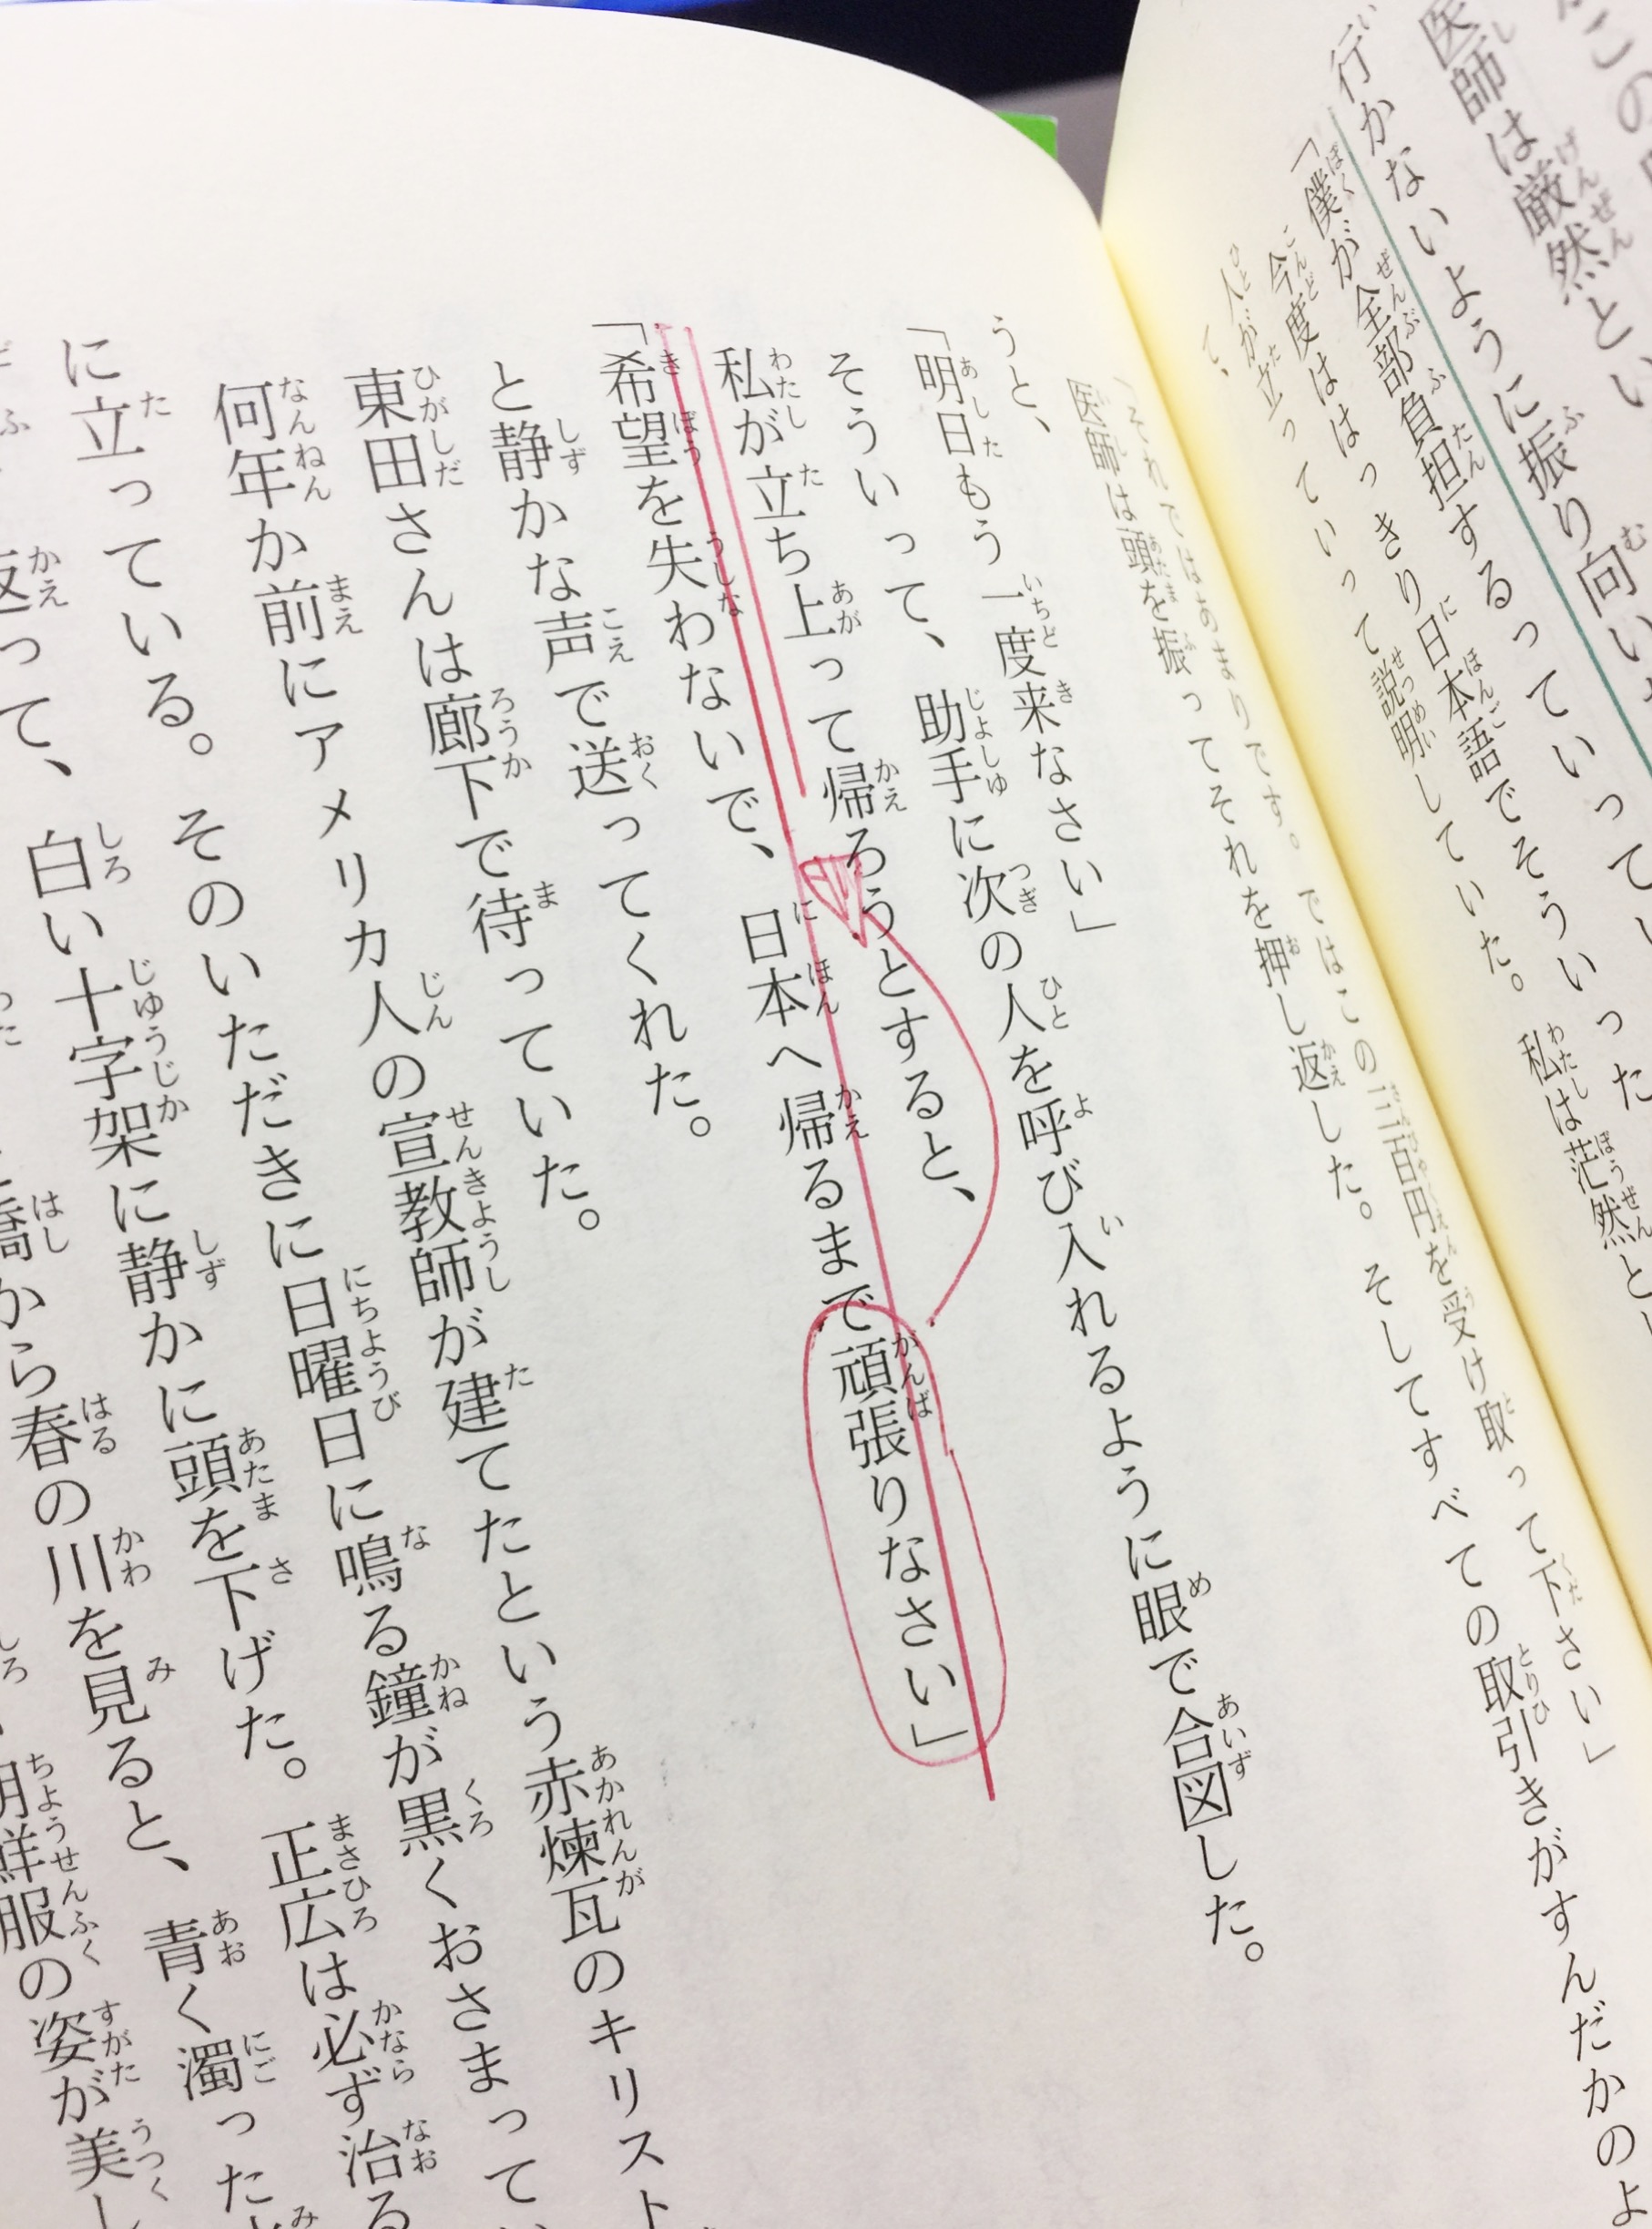 医師は厳然とい
行かないように振り向い
「僕が全部負担するっていってい
今度ははっきり日本語でそういった
人が立っていって説明していた。私は茫然と
て、
「それではあまりです。ではこの二百円を受け取って下さい」
医師は頭を振ってそれを押し返した。そしてすべての取引きがすんだかのよ
うと、
「明日もう一度来なさい」
そういって、助手に次の人を呼び入れるように眼で合図した。
私が立ち上って帰ろうとすると、
「希望を失わないで、日本へ帰るまで頑張りなさい」
と静かな声で送ってくれた。
東田さんは廊下で待っていた。
何年か前にアメリカ人の宣教師が建てたという赤煉瓦のキリスト
に立っている。そのいただきに日曜日に鳴る鐘が黒くおさまってい
返って、白い十字架に静かに頭を下げた。正広は必ず治る
橋から春の川を見ると、青く濁った
朝鮮服の姿が美し